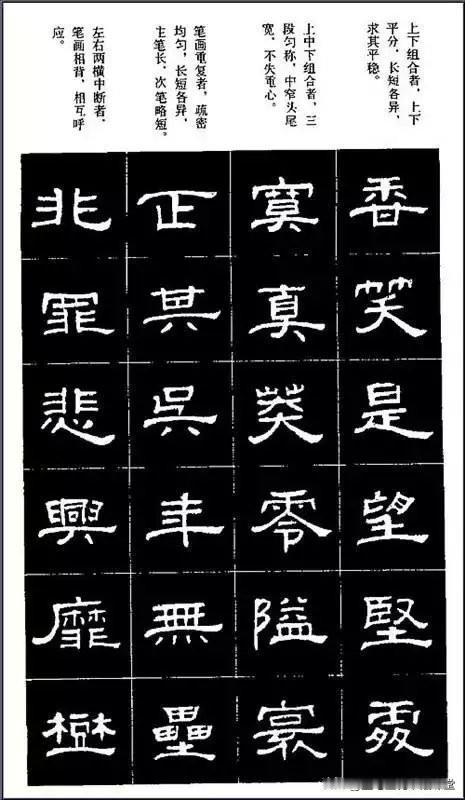 上下组合者，上下
平分，长短各异，
求其平稳。
香笑是望堅
上中下组合者，三
段匀称，中窄头尾
宽，不失重心。
寞真葵零隘
笔画重复者，疏密
均匀，长短各异，
主笔长，次笔略短。
正其吳年無壘
左右两横中断者，
笔画相背，相互呼
应。
非罪悲興靡